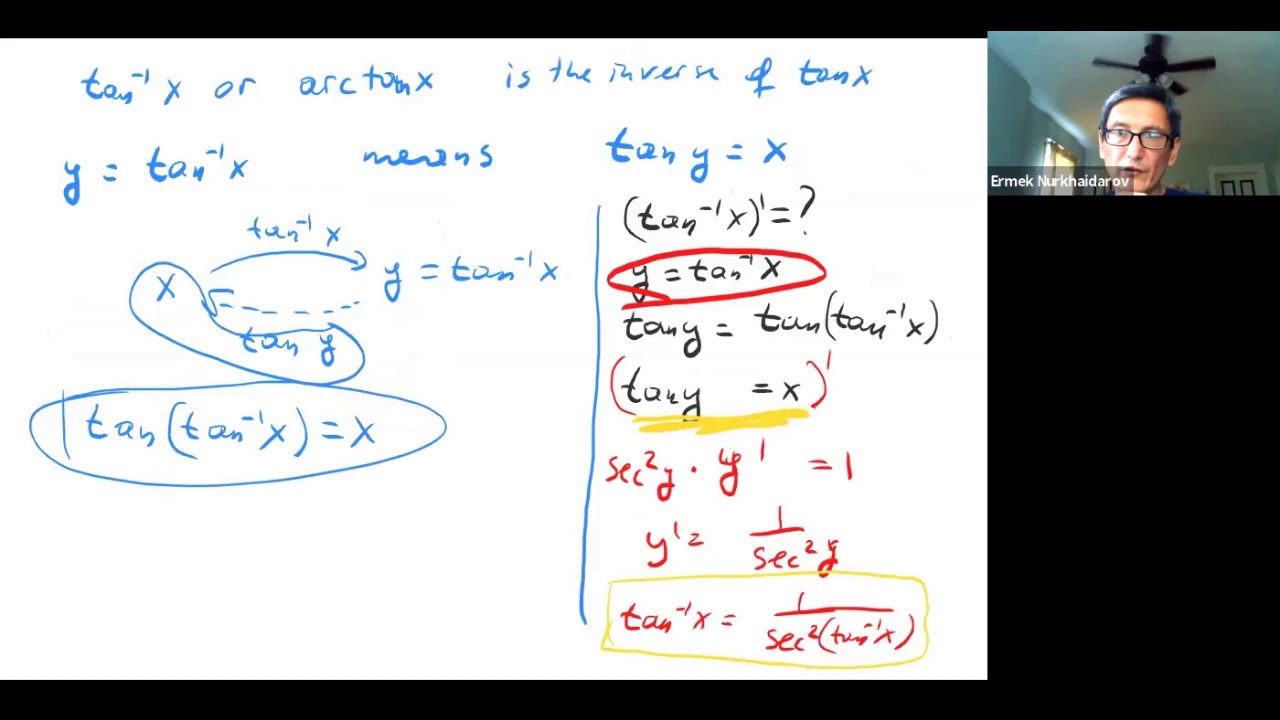 tan⁻¹ x or arctan x is the inverse of tan x
y = tan⁻¹ x means tan y = x
tan⁻¹ x
x y = tan⁻¹ x
tan y
tan(tan⁻¹ x) = x
(tan⁻¹ x)' = ?
y = tan⁻¹ x
tan y = tan(tan⁻¹ x)
(tan y = x)'
sec² y · y' = 1
y' = 1/sec² y
tan⁻¹ x = 1/sec²(tan⁻¹ x)
Ermek Nurkhaidarov